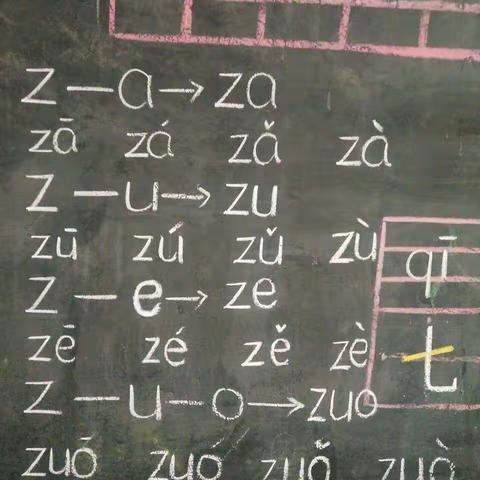 z—a→za
zā zá zǎ zà
z—u→zu
zū zú zǔ zù
z—e→ze
zē zé zě zè
z—u—o→zuo
zuō zuó zuǒ zuò
qī
七